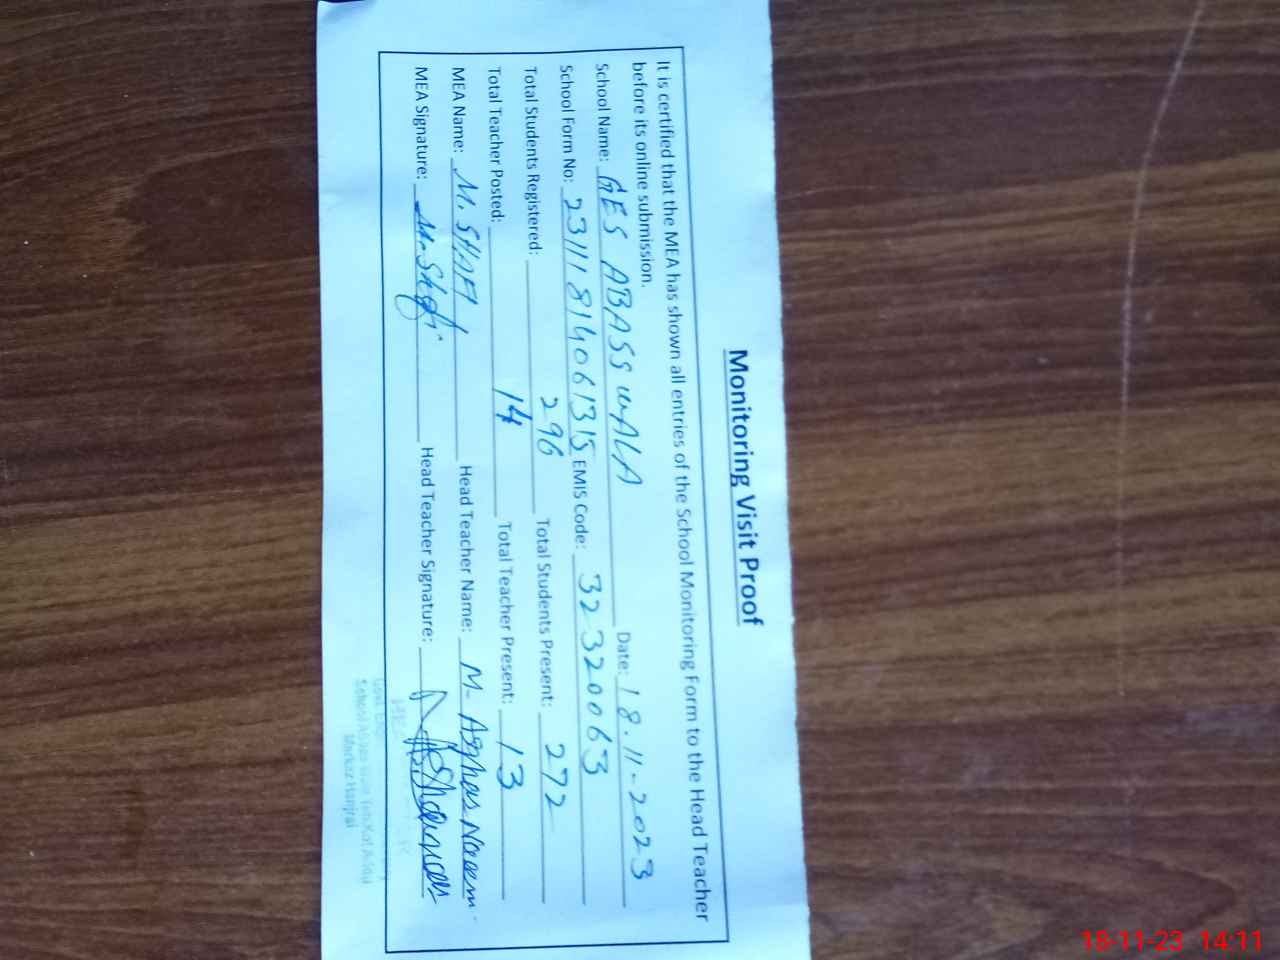 Monitoring Visit Proof
It is certified that the MEA has shown all entries of the School Monitoring Form to the Head Teacher
before its online submission.
School Name: GES ABASS WALA Date: 18.11-2023
School Form No: 23111814061315 EMIS Code: 32320063
Total Students Registered: 296 Total Students Present: 272
Total Teacher Posted: 14 Total Teacher Present: 13
MEA Name: M. SHAFI Head Teacher Name: M- Asghar Naeem
MEA Signature: M-Shafi Head Teacher Signature:
18-11-23 14:11